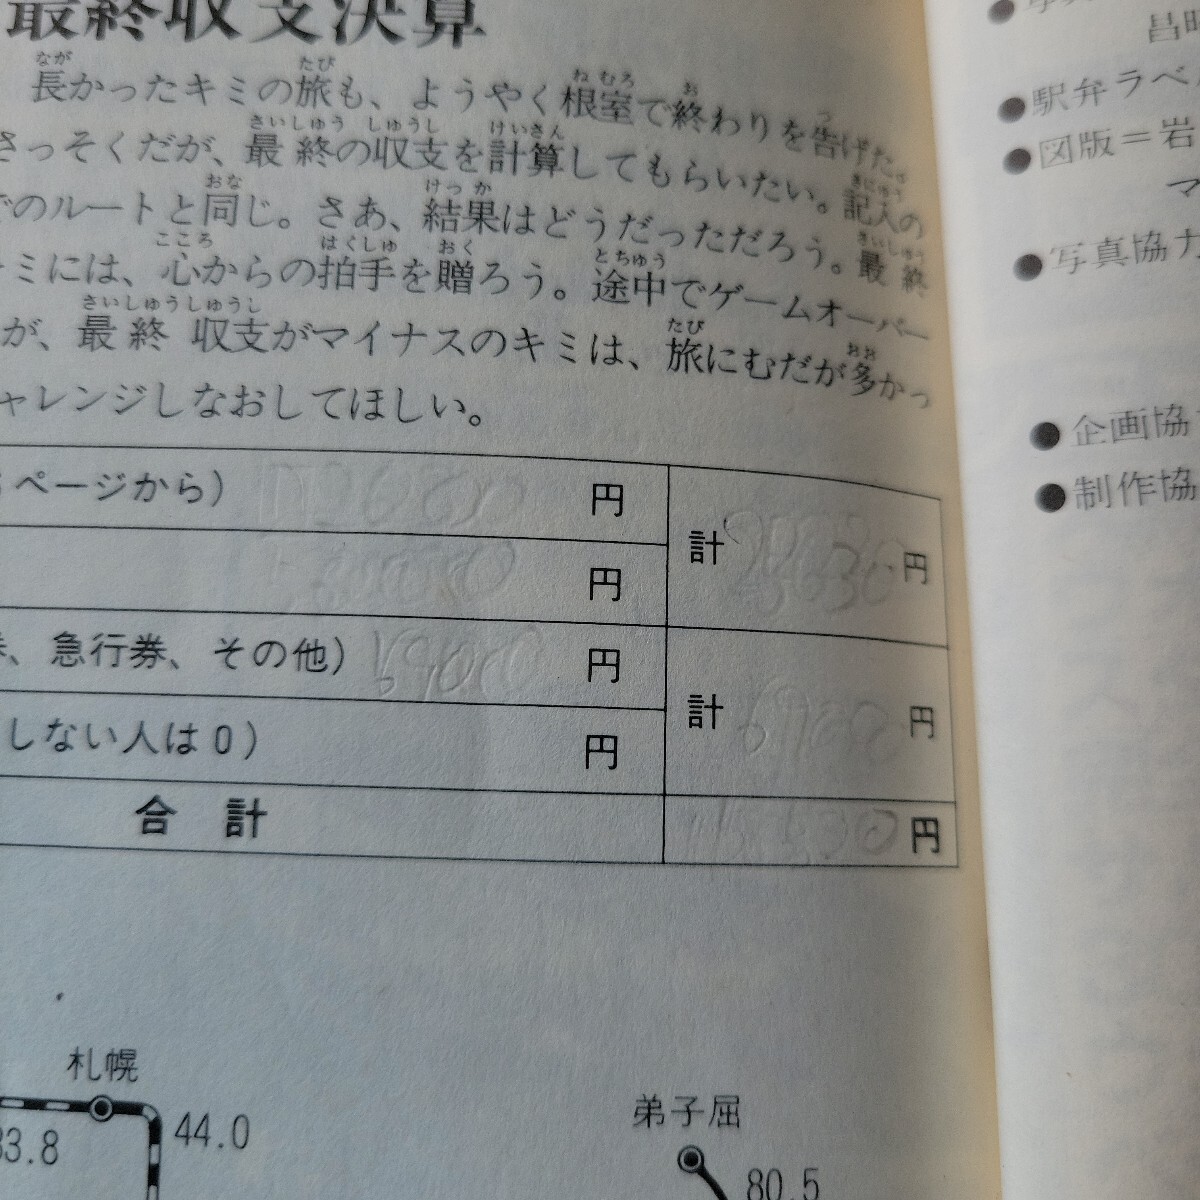 最終収支決算
長かったキミの旅も、ようやく根室で終わりを告げた。
さっそくだが、最終の収支を計算してもらいたい。記入の
でのルートと同じ。さあ、結果はどうだっただろう。最終
キミには、心からの拍手を贈ろう。途中でゲームオーバー
が、最終収支がマイナスのキミは、旅にむだが多かっ
ャレンジしなおしてほしい。
ページから) 円
計 円
円
券、急行券、その他) 円
計 6900 円
しない人は0) 円
合計 円
札幌
44.0
33.8
弟子屈
80.5
昌
●駅弁ラベ
●図版＝岩
マ
●写真協力
●企画協
●制作協